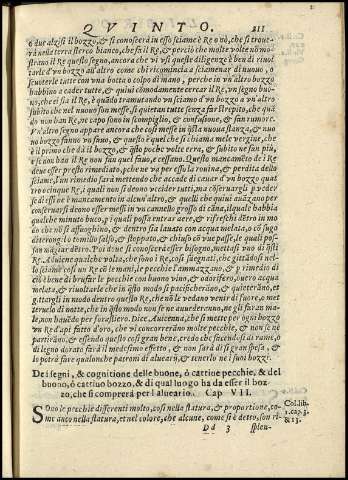 QVINTO. 211
o due alzisi il bozzo, & si conoscerà in esso sciame è Re o nò, che si troue-
rà nella terra sterco bianco, che fà il Re, & perciò che molte volte nō mo-
strano il Re questo segno, ancora che vi vsi queste diligenze è ben di rimol
tarle d'vn bozzo all'altro come chi ricomincia a sciamenar di nuouo, o
scuoterle tutte con vna botta in vn lenzuolo bianco, o altra parte che
habbino a cader tutte, & quiui cōmodamente cercar il Re, vn segno buo-
no, che vi sia il Re, è quādo tramutando vn sciamo d'vn bozzo a vn altro
subito che nel nuouo son messe si quietan tutte senza far strepito, che quā
do non han Re, ne capo sono in scompiglio, & confusione, & fan rumore.
Vn'altro segno appare ancora che così messe in q̄sta nuoua stanza, & nuo
uo bozzo fanno vn fauo, & questo è quel che si chiama mele vergine, che
è il primo che dà il bozzo, & q̄sto poche volte cera, & subito ne fan più,
& se non han il Re non fan quel fauo, e cessano. Questo mancamēto de i Re
deue esser presto rimediato, pche ne và per essi la rouina, & perdita dello
sciame, l'un rimedio sarà mettendo che accade di cauar d'vn bozzo quat
tro cinque Re, i quali non si deono vccider tutti, ma riseruargli p veder
se di essi ne è mancamento in alcun altro, & quelli che quiui auāzano per
conseruarsi deono esser messi in vn cannello grosso di cāna, il qual habbia
qualche minuto buco, p i quali possa entrar aere, & rifreschi dētro in mo
do che nō si affoghino, & dentro sia lauato con acqua melata, o cō sugo
di terongil o tomillo salso, & stoppato, & chiuso cō vue passe, le quali pos-
san māgiar dētro. Poi doue si conoscerà esser bisogno, mettasi vno di questi
Re. Aduiene qualche volta, che posto il Re, così nel segnati, che gittādosi nel-
lo sciame così un Re cō le mani, le pecchie l'ammazzano, & p rimedio di
ciò è bene di brusar le pecchie con buono vino, & odorifero, ouero acqua
melata, & riuoltarle che in q̄sto modo si pacificherāno, & quieterāno, et
gittargli in modo dentro questo Re, che nō le vedano venir di fuore, o met
teruelo di notte, che in q̄sto modo non se ne auuederanno, ne gli faran ma-
le, non hauēdo per forastiero. Dice, Auicenna, che si metta per ogni bozzo
vn Re d'api fatto d'oro, che vi concorreranno molte pecchie, & non se nè
partirāno, & essendo questo così gran bene, credo che facendolo rame, o
di legno dorato farà il medesimo effetto, & non sarà di sì gran spesa, &
lo potrà fare qualunque patroni di aluearij, & tenerlo ne i suoi bozzi.
De i segni, & cognitione delle buone, ò cattiue pecchie, & del
buono, ò cattiuo bozzo, & di qual luogo ha da esser il boz
zo, che si comprerà per l'alueario. Cap VII.
SOno le pecchie differenti molto, così nella statura, & proportione, co-
me anco nella statura, et nel colore, che alcune, come si è detto, son ri-
Col. lib.
1. cap. 3.
& 13.
Dd 3 splen-